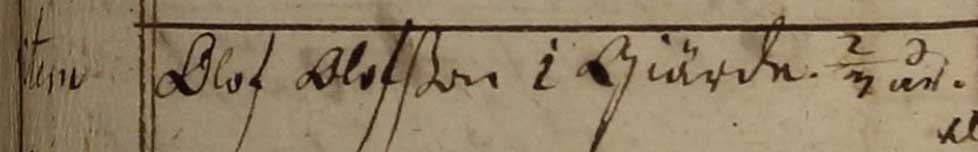 Item Olof Olofsson i Giärde. 2/7 år.